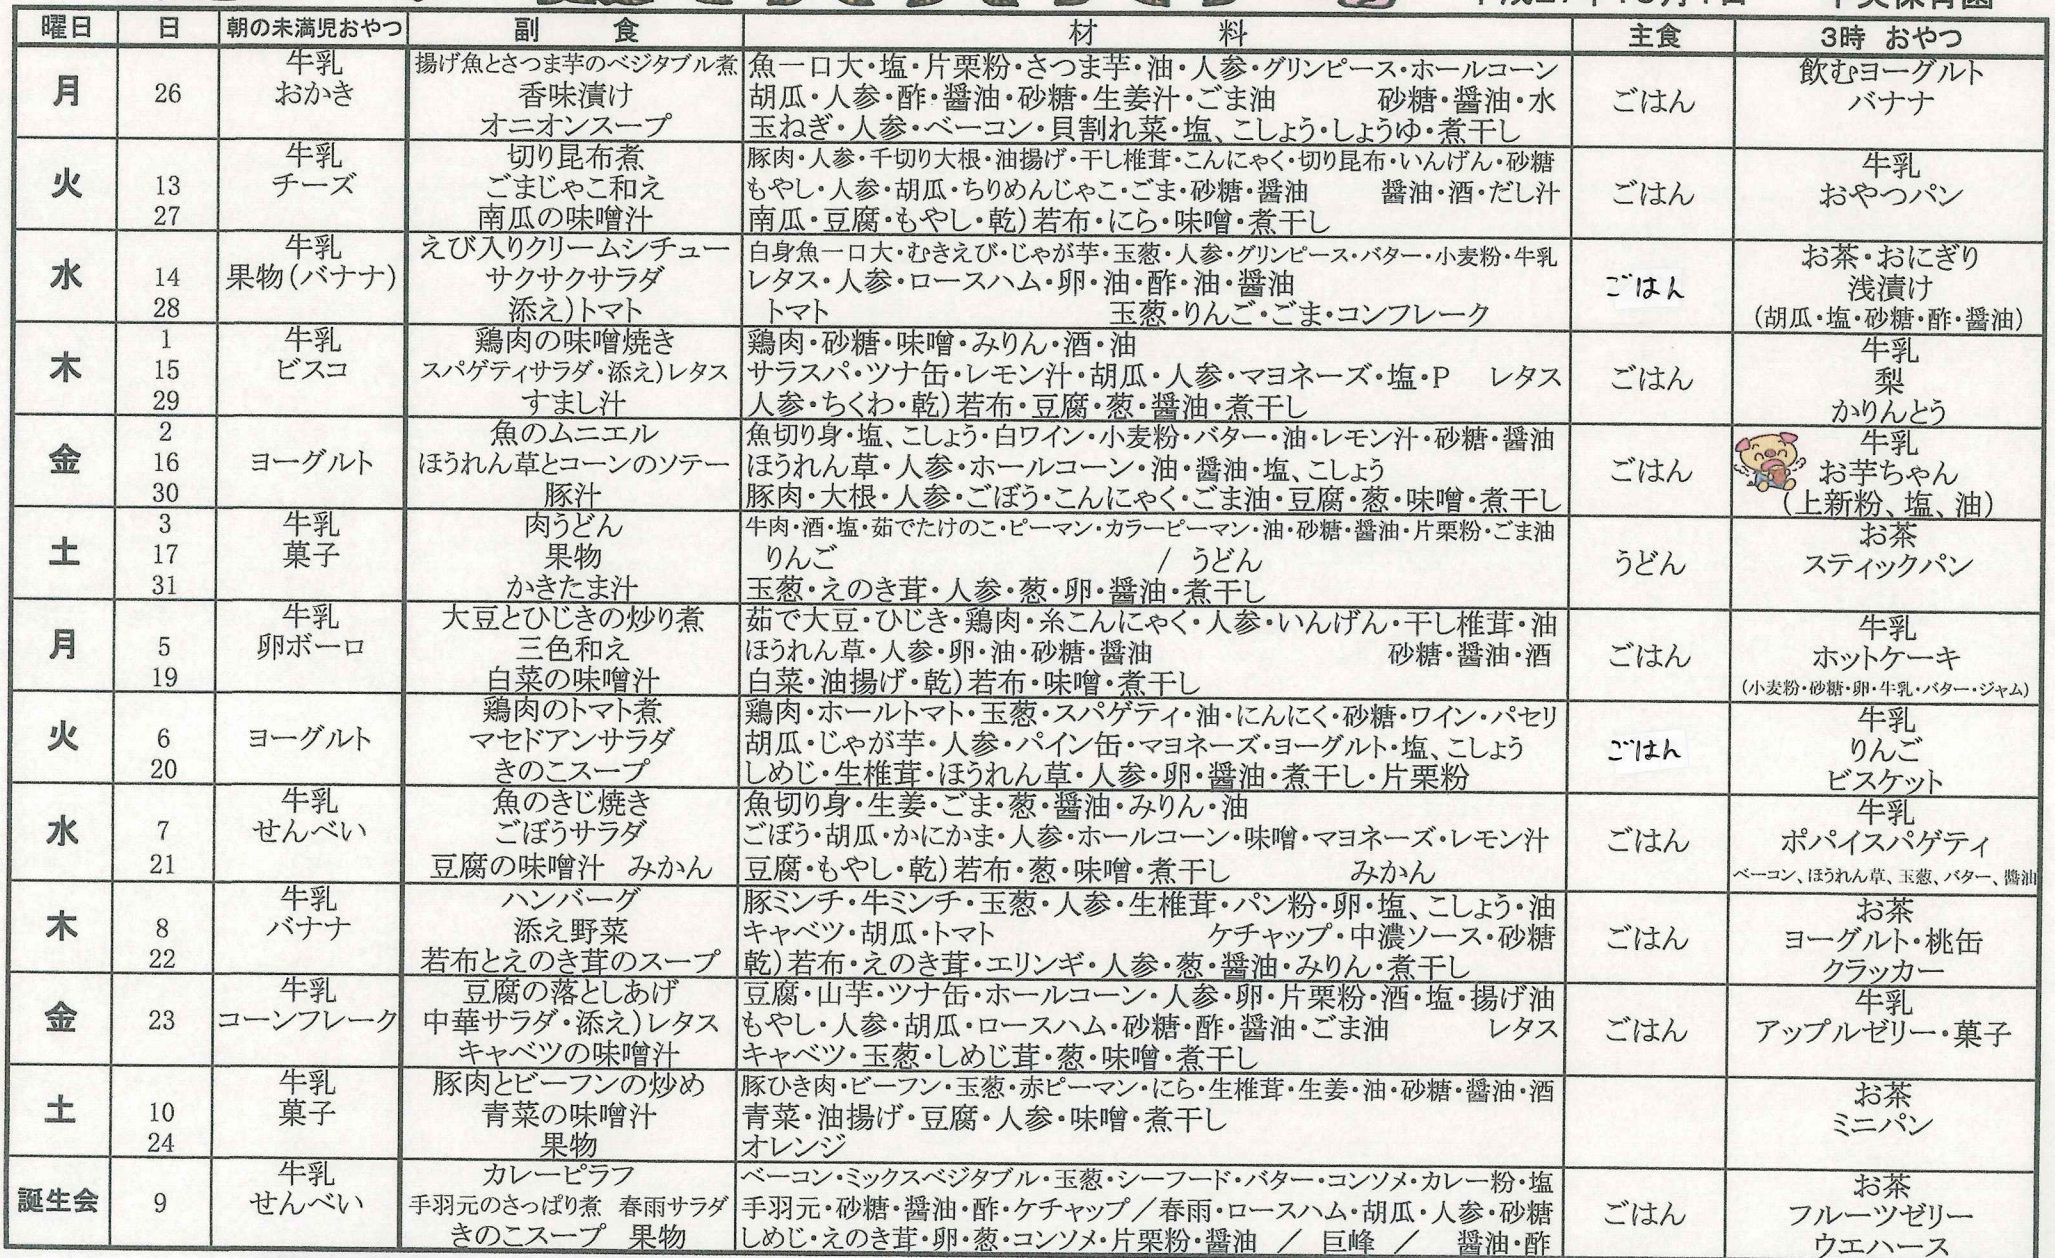 中央保育園
曜日 日 朝の未満児おやつ 副 食 材 料 主食 3時 おやつ
月
26
牛乳
おかき
揚げ魚とさつま芋のベジタブル煮
香味漬け
オニオンスープ
魚一口大・塩・片栗粉・さつま芋・油・人参・グリンピース・ホールコーン
胡瓜・人参・酢・醤油・砂糖・生姜汁・ごま油 砂糖・醤油・水
玉ねぎ・人参・ベーコン・貝割れ菜・塩、こしょう・しょうゆ・煮干し
ごはん
飲むヨーグルト
バナナ
火
13
27
牛乳
チーズ
切り昆布煮
ごまじゃこ和え
南瓜の味噌汁
豚肉・人参・千切り大根・油揚げ・干し椎茸・こんにゃく・切り昆布・いんげん・砂糖
もやし・人参・胡瓜・ちりめんじゃこ・ごま・砂糖・醤油 醤油・酒・だし汁
南瓜・豆腐・もやし・乾)若布・にら・味噌・煮干し
ごはん
牛乳
おやつパン
水
14
28
牛乳
果物(バナナ)
えび入りクリームシチュー
サクサクサラダ
添え)トマト
白身魚一口大・むきえび・じゃが芋・玉葱・人参・グリンピース・バター・小麦粉・牛乳
レタス・人参・ロースハム・卵・油・酢・油・醤油
トマト 玉葱・りんご・ごま・コンフレーク
ごはん
お茶・おにぎり
浅漬け
(胡瓜・塩・砂糖・酢・醤油)
木
1
15
29
牛乳
ビスコ
鶏肉の味噌焼き
スパゲティサラダ・添え)レタス
すまし汁
鶏肉・砂糖・味噌・みりん・酒・油
サラスパ・ツナ缶・レモン汁・胡瓜・人参・マヨネーズ・塩・P レタス
人参・ちくわ・乾)若布・豆腐・葱・醤油・煮干し
ごはん
牛乳
梨
かりんとう
金
2
16
30
ヨーグルト
魚のムニエル
ほうれん草とコーンのソテー
豚汁
魚切り身・塩、こしょう・白ワイン・小麦粉・バター・油・レモン汁・砂糖・醤油
ほうれん草・人参・ホールコーン・油・醤油・塩、こしょう
豚肉・大根・人参・ごぼう・こんにゃく・ごま油・豆腐・葱・味噌・煮干し
ごはん
牛乳
お芋ちゃん
(上新粉、塩、油)
土
3
17
31
牛乳
菓子
肉うどん
果物
かきたま汁
牛肉・酒・塩・茹でたけのこ・ピーマン・カラーピーマン・油・砂糖・醤油・片栗粉・ごま油
りんご / うどん
玉葱・えのき茸・人参・葱・卵・醤油・煮干し
うどん
お茶
スティックパン
月
5
19
牛乳
卵ボーロ
大豆とひじきの炒り煮
三色和え
白菜の味噌汁
茹で大豆・ひじき・鶏肉・糸こんにゃく・人参・いんげん・干し椎茸・油
ほうれん草・人参・卵・油・砂糖・醤油 砂糖・醤油・酒
白菜・油揚げ・乾)若布・味噌・煮干し
ごはん
牛乳
ホットケーキ
(小麦粉・砂糖・卵・牛乳・バター・ジャム)
火
6
20
ヨーグルト
鶏肉のトマト煮
マセドアンサラダ
きのこスープ
鶏肉・ホールトマト・玉葱・スパゲティ・油・にんにく・砂糖・ワイン・パセリ
胡瓜・じゃが芋・人参・パイン缶・マヨネーズ・ヨーグルト・塩、こしょう
しめじ・生椎茸・ほうれん草・人参・卵・醤油・煮干し・片栗粉
ごはん
牛乳
りんご
ビスケット
水
7
21
牛乳
せんべい
魚のきじ焼き
ごぼうサラダ
豆腐の味噌汁 みかん
魚切り身・生姜・ごま・葱・醤油・みりん・油
ごぼう・胡瓜・かにかま・人参・ホールコーン・味噌・マヨネーズ・レモン汁
豆腐・もやし・乾)若布・葱・味噌・煮干し みかん
ごはん
牛乳
ポパイスパゲティ
ベーコン、ほうれん草、玉葱、バター、醤油
木
8
22
牛乳
バナナ
ハンバーグ
添え野菜
若布とえのき茸のスープ
豚ミンチ・牛ミンチ・玉葱・人参・生椎茸・パン粉・卵・塩、こしょう・油
キャベツ・胡瓜・トマト ケチャップ・中濃ソース・砂糖
乾)若布・えのき茸・エリンギ・人参・葱・醤油・みりん・煮干し
ごはん
お茶
ヨーグルト・桃缶
クラッカー
金
23
牛乳
コーンフレーク
豆腐の落としあげ
中華サラダ・添え)レタス
キャベツの味噌汁
豆腐・山芋・ツナ缶・ホールコーン・人参・卵・片栗粉・酒・塩・揚げ油
もやし・人参・胡瓜・ロースハム・砂糖・酢・醤油・ごま油 レタス
キャベツ・玉葱・しめじ茸・葱・味噌・煮干し
ごはん
牛乳
アップルゼリー・菓子
土
10
24
牛乳
菓子
豚肉とビーフンの炒め
青菜の味噌汁
果物
豚ひき肉・ビーフン・玉葱・赤ピーマン・にら・生椎茸・生姜・油・砂糖・醤油・酒
青菜・油揚げ・豆腐・人参・味噌・煮干し
オレンジ
お茶
ミニパン
誕生会
9
牛乳
せんべい
カレーピラフ
手羽元のさっぱり煮 春雨サラダ
きのこスープ 果物
ベーコン・ミックスベジタブル・玉葱・シーフード・バター・コンソメ・カレー粉・塩
手羽元・砂糖・醤油・酢・ケチャップ/春雨・ロースハム・胡瓜・人参・砂糖
しめじ・えのき茸・卵・葱・コンソメ・片栗粉・醤油 / 巨峰 / 醤油・酢
ごはん
お茶
フルーツゼリー
ウエハース